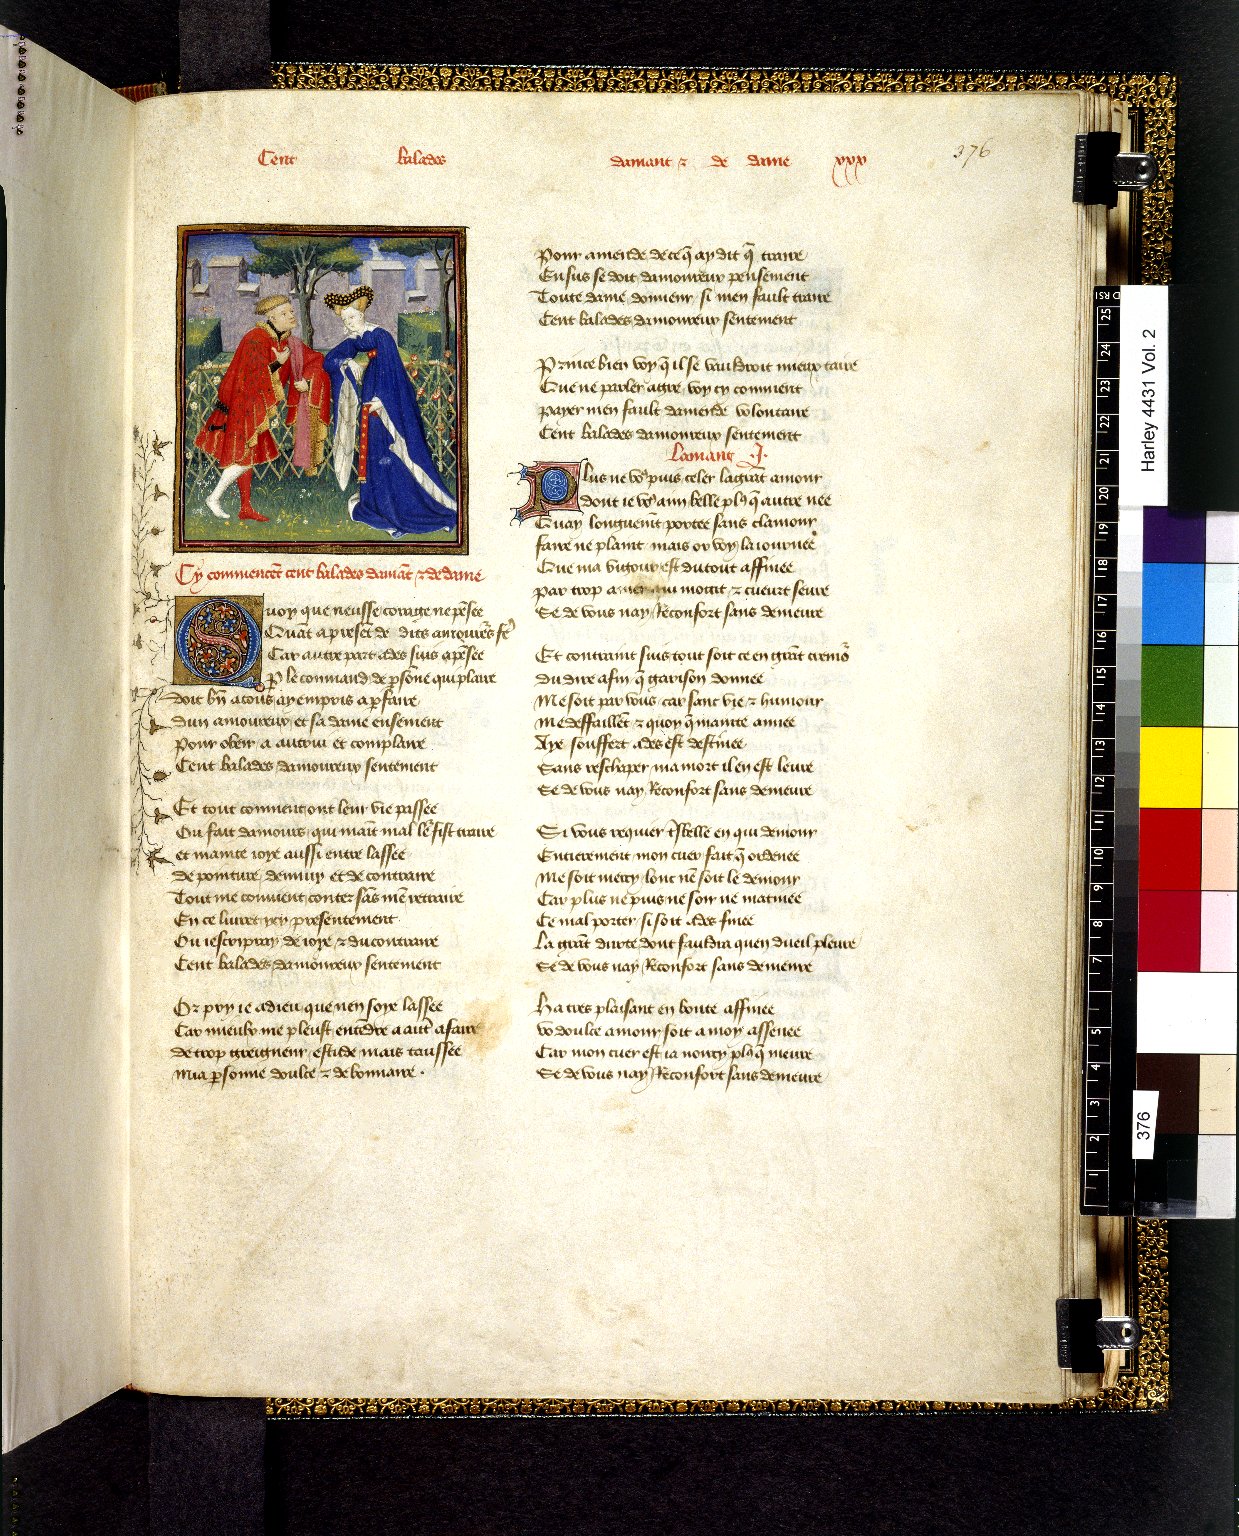 Cent balades damant ⁊ de dame xxx
376
Cy commencēt cent balades damāt ⁊ de dame
Quoy que neusse corage ne pēsee
Quāt a presēt de dits amoureˢ fēʳ
Car autre part ades suis apēsee
P le command de psōne qui plaire
doit bn̄ a tous ay empris a pfaire
dun amoureux et sa dame ensement
Pour obeir a autrui et complaire
Cent balades damoureux sentement
Et tout comment ont leur vie passee
Ou fait damours qui maīt mal leʳ fist traire
et mainte ioye aussi entre lassee
de pointure denuiy et de contraire
Tout me couuient conter sās mē retraire
En ce liuret ycy presentement
Ou iescripray de ioye ⁊ du contraire
Cent balades damoureux sentement
Or pry ie a dieu que nen soye lassee
Car mieulx me pleust entēdre a autʳ afaire
de trop greigneur estude mais taussee
Mia psonne doulce ⁊ debonnaire
Pour amende de ce q̄ ay dit q̄ traire
Ensus se doit damoureux pensement
Toute dame donneur si men fault traire
Cent balades damoureux sentement
Prince bien voy q̄ il se vauldroit mieux taire
Que ne parler a gre voy cy comment
Payer men fault damende volontaire
Cent balades damoureux sentement
Lamant .J.
Plus ne voˢ puis celer la grāt amour
dont ie voˢ aim belle plˢ q̄ autre nee
Quay longuemt̄ portee sans clamour
faire ne plaint mais or voy la iournee
Que ma vigour est du tout affinee
par trop amer qui mocit ⁊ cueurt seure
Se de vous nay Reconfort sans demeure
Et contraint suis tout soit ce en grāt cremoʳ
du dire afin q̄ garison donnee
Me soit par vous car sant vie ⁊ humour
Me deffaillēt ⁊ quoy q̄ mainte annee
Aye souffert ades est destinee
Sans reschaper ma mort il en est leure
Se de vous nay Reconfort sans demeure
Si vous requier tˢbelle en qui demour
Entierement mon cuer fait q̄ ordenee
Me soit mercy lont nē soit le demour
Car plus ne puis ne soir ne matinee
Ce mal porter si soit ades finee
La grāt durte dont fauldra quen dueil pleure
Se de vous nay Reconfort sans demeure
Ha tres plaisant en bonte affinee
vo doulce amour soit a moy assenee
Car mon cuer est ia noircy plˢ q̄ meure
Se de vous nay Reconfort sans demeure
Harley 4431 Vol. 2
376